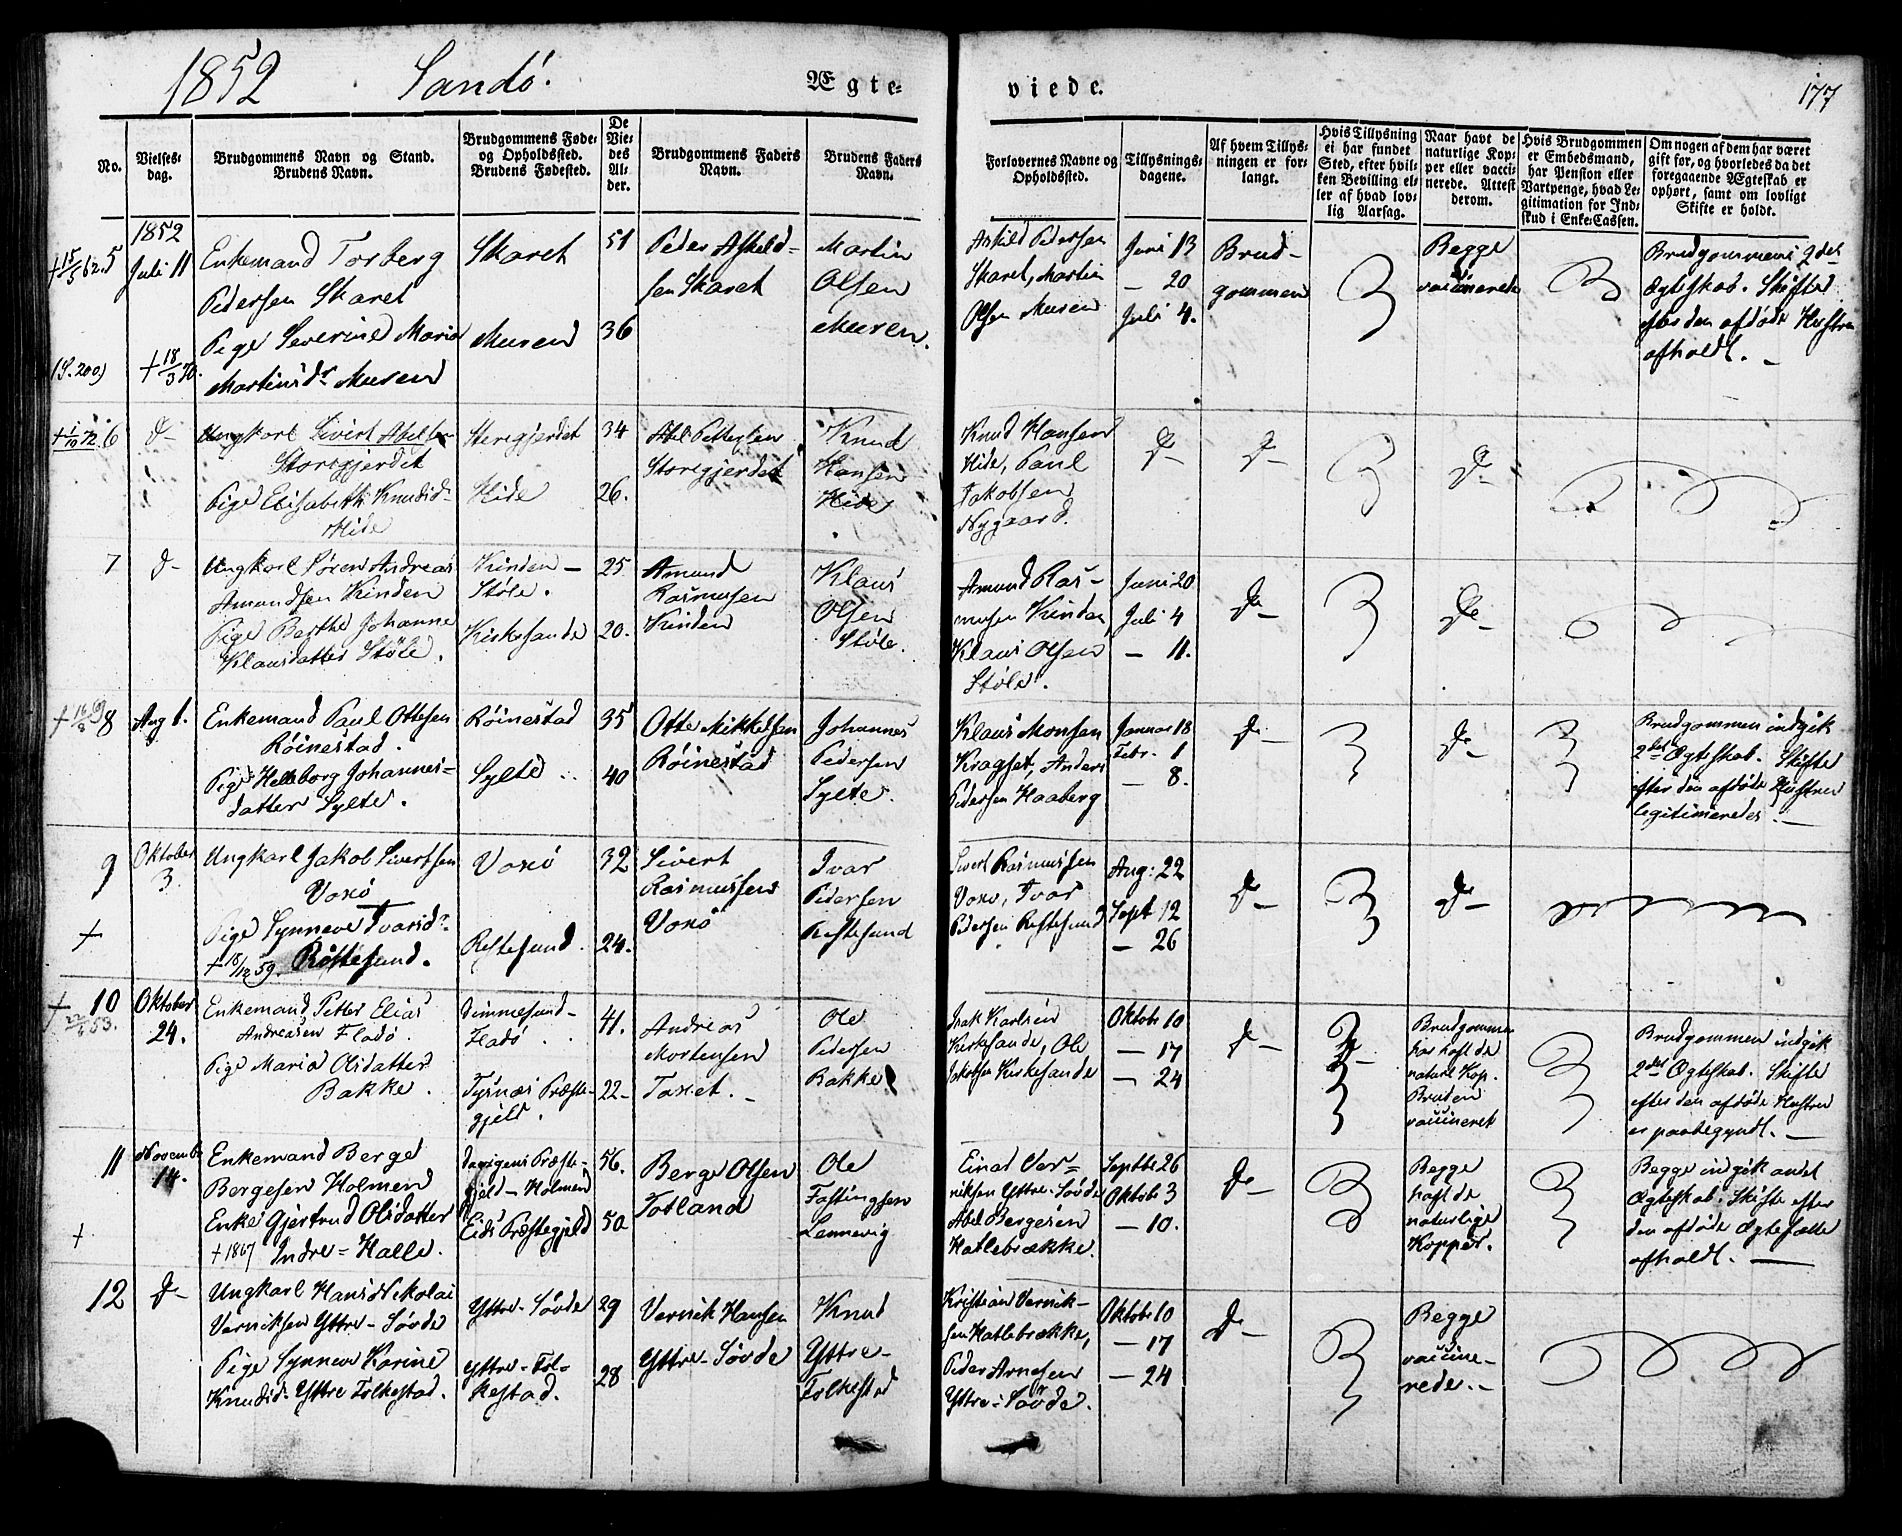 1852 Sandö. Ægte-
viede. 177
No.
Vielses-
dag.
Brudgommens Navn og Stand.
Brudens Navn.
Brudgommens Føde-
og Opholdssted.
Brudens Fødested.
De
Vie-
des
Al-
der.
Brudgommens Faders
Navn.
Brudens Faders
Navn.
Forlovernes Navne og
Opholdssted.
Tillysnings-
dagene.
Af hvem Tillys-
ningen er for-
langt.
Hvis Tillysning
ei har fundet
Sted, efter hvil-
ken Bevilling el-
ler af hvad lov-
lig Aarsag.
Naar havt de
naturlige Kop-
per eller vacci-
nerede. Attest
derom.
Hvis Brudgommen
er Embedsmand,
har Pension eller
Vartpenge, hvad Le-
gitimation for Ind-
skud i Enke-Cassen.
Om nogen af dem har været
gift før, og hvorledes da det
foregaaende Ægteskab er
ophørt, samt om lovligt
Skifte er holdt.
+ 15/5 62. 5
(S. 200)
1852
Juli 11
+ 18/3 70.
Enkemand Torberg
Pedersen Skaret
Pige Severine Maria
Martinsdr Muren
Skaret
Muren
51
36
Peder Askeld-
sen Skaret
Martin
Olsen
Muren.
Askild Pedersen
Skaret, Martin
Olsen Muren
Juni 13
— 20
Juli 4.
Brud-
gommen
Begge
vaccinerede
Brudgommens 2det
Ægteskab. Skifte
efter den afdøde Hustru
afholdt. —
+ 1/10 72. 6
d-
Ungkarl Sivert Abelsen
Storegjerdet
Pige Elisabeth Knudsdr
Hide
Storegjerdet
Hide
34
26.
Abel Pettersen
Storegjerdet
Knud
Hansen
Hide
Knud Hansen
Hide, Paul
Jakobsen
Nygaard.
d-
d-
d-
7
d-
Ungkarl Søren Andreas
Amundsen Kinden
Pige Berthe Johanne
Klausdatter Støle.
Kinden —
Støle.
Kirkesande
25
20.
Amund
Rasmusen
Kinden
Klaus
Olsen
Støle.
Amund Ras-
musen Kinden,
Klaus Olsen
Støle.
Juni 20
Juli 4
— 11.
d-
d-
8
Aug 1.
Enkemand Paul Ottesen
Röinestad.
Pige Helleborg Johannes-
datter Sylte.
Röinestad
Sylte
35
40
Otte Mikkelsen
Röinestad
Johannes
Pedersen
Sylte.
Klaus Monsen
Kragset, Anders
Pedersen Haaberg
Januar 18
Febr. 1
— 8.
d-
d-
Brudgommen indgik
2det Ægteskab. Skifte
efter den afdøde Hustrue
legitimeredes. —
9
+
Oktober
3.
Ungkarl Jakob Sivertsen
Voxö
Pige Synneve Ivarsdr
+ 18/12 59. Röttesund.
Voxö
Röttesund.
32
24.
Sivert
Rasmussen
Voxö
Ivar
Pedersen
Röttesund
Sivert Rasmussen
Voxö, Ivar
Pedersen Röttesund
Aug: 22
Sept 12
— 26
d-
d-
+ 10
53.
Oktober
24.
Enkemand Petter Elias
Andreasen Flødö.
Pige Maria Olsdatter
Bakke.
Dimmesund-
Flødö.
Tysnæs Præste-
gjeld.
41.
22-
Andreas
Mortensen
Taxet. —
Ole
Pedersen
Bakke
Isak Karlsen
Kirkesande, Ole
Jakobsen Kirkesande
Oktobr 10
— 17
— 24
d-
d-
Brudgommen
har haft de
naturl. Kop.
Bruden
vaccineret
Brudgommen indgik
2det Ægteskab. Skifte
efter den afdøde Hustru
er paabegyndt. —
11
+
November
14.
Enkemand Berge
Bergesen Holmen
Enke Gjertrud Olsdatter
+ 1867 Indre-Halle.
Davigens Præste-
gjeld - Holmen
Eids Præstegjeld
56.
50.
Berge Olsen
Totland
Ole
Fastingsen
Lennevig
Einar Ver-
niksen Yttre-Søvde
Abel Bergesen
Hatlebrække.
Septbr 26
Oktobr 3
— 10.
d-
Begge
haft de
naturlige
Kopper.
Begge indgik andet
Ægteskab. Skifte efter
den afdøde Ægtefælle
afholdt. —
12
d-
Ungkarl Hans Nikolai
Verniksen Yttre-Søvde
Pige Synneve Karine
Knudsdr. Yttre Folkestad.
Yttre-Søvde
Yttre-Fol-
kestad.
29
28
Vernik Hansen
Yttre-Søvde
Knud
Yttre-
Folkestad
Kristian Vernik-
sen Hatlebrække,
Peder Arnesen
Yttre-Søvde.
Oktobr 10
— 17
— 24
d-
Begge
vaccine-
rede. —